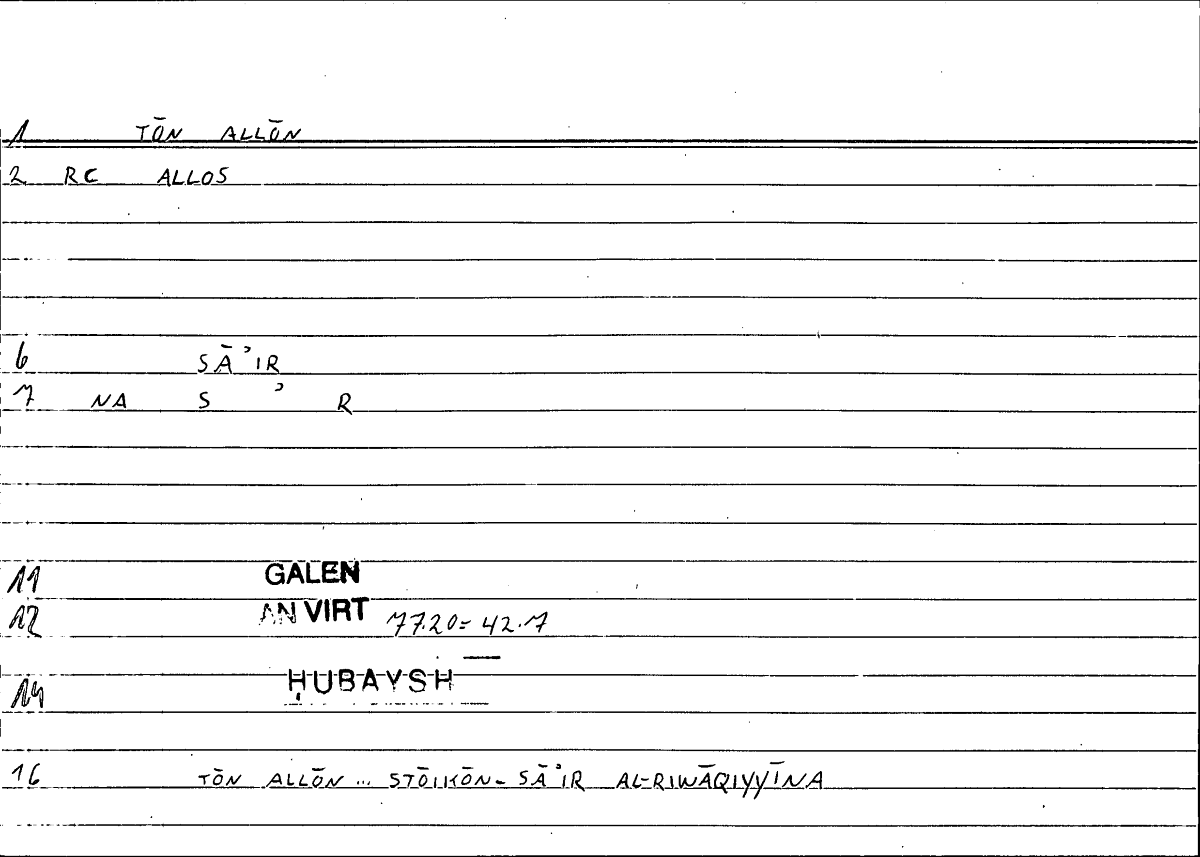 1 TŌN ALLŌN
2 RC ALLOS
6 SĀʾIR
7 NA S ʾ R
11 GALEN
12 AN VIRT 77.20= 42.7
14 ḤUBAYSH
16 TŌN ALLŌN ... STŌIKŌN = SĀʾIR AL-RIWĀQIYYĪNA